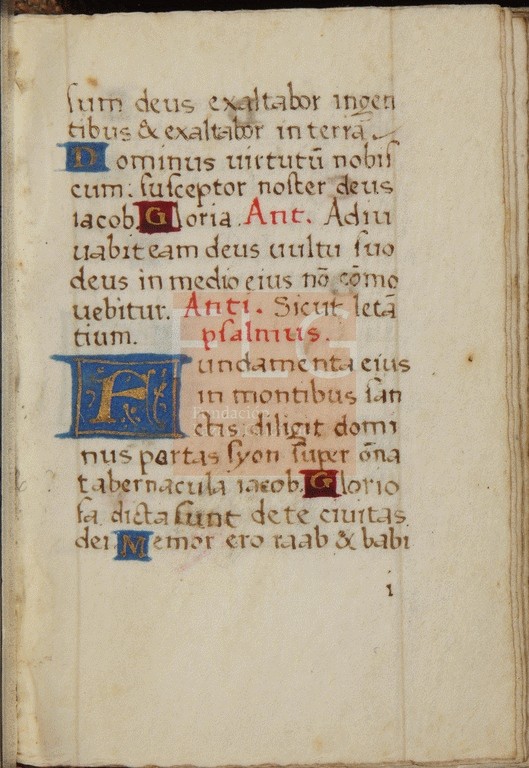 sum deus exaltabor ingen
tibus & exaltabor in terra
Dominus uirtutū nobis
cum: susceptor noster deus
iacob. Gloria. Ant. Adiu
uabit eam deus uultu suo
deus in medio eius nō cōmo
uebitur. Anti. Sicut letā
tium. psalmus.
Fundamenta eius
in montibus san
ctis, diligit domi
nus portas syon super ōna
tabernacula iacob. Glorio
sa dicta sunt de te ciuitas
dei. Memor ero raab & babi
1
FLG
Fundación